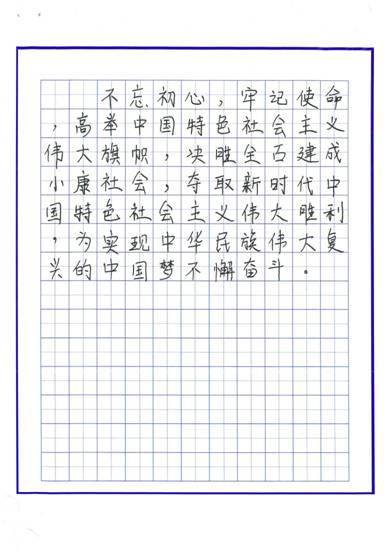 不忘初心，牢记使命
，高举中国特色社会主义
伟大旗帜，决胜全面建成
小康社会，夺取新时代中
国特色社会主义伟大胜利
，为实现中华民族伟大复
兴的中国梦不懈奋斗。